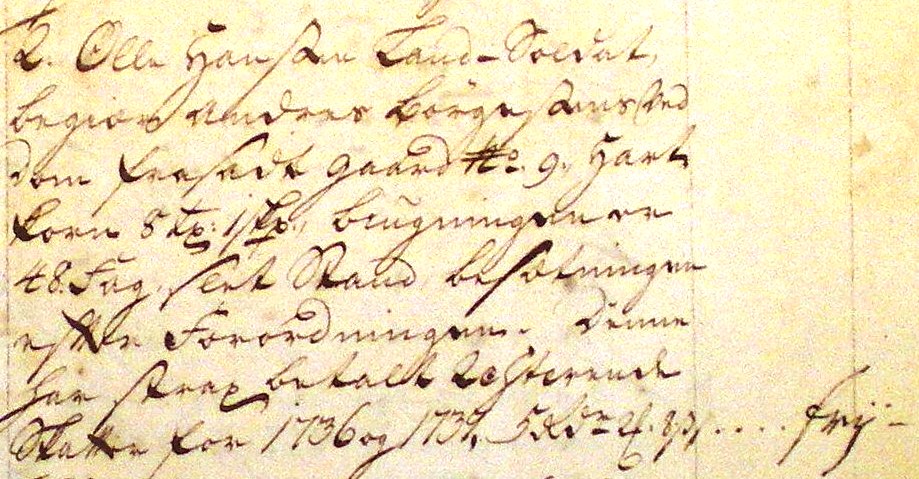 2. Olle Hanssen Land-Soldat,
begier Andres Börgesens Sted
dom frasadt gaard No. 9, Hart
korn 8 tp: 1 skp., biugningen er
48. Fag, slet Stand, besætningen
efter Forordningen. Denne
har strax betalt Resterende
Skatter for 1736 og 1737, 5 Rdr .... frÿ-